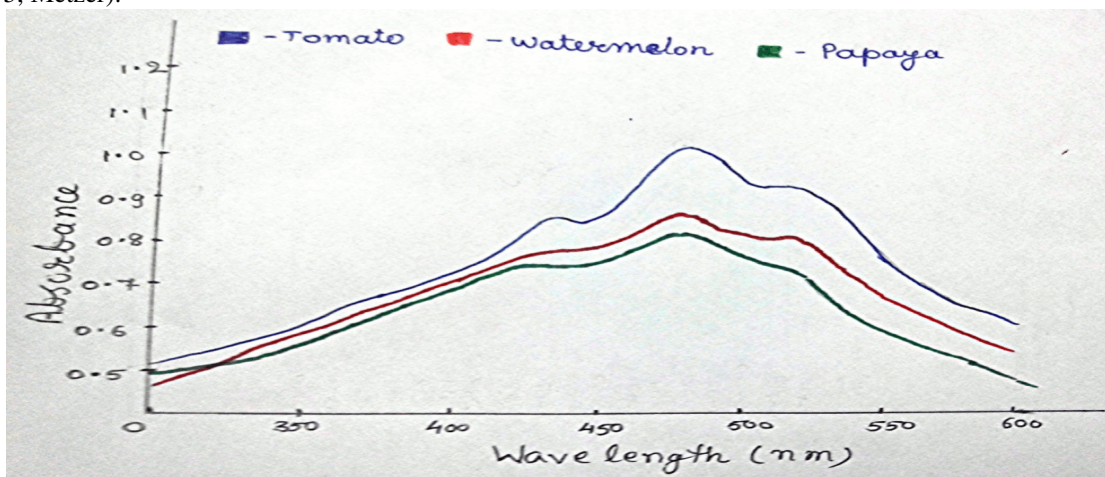 5, Metzer).
- Tomato - Watermelon - Papaya
1.2
1.1
1.0
0.9
0.8
0.7
0.6
0.5
Absorbance
0 350 400 450 500 550 600
Wave length (nm)